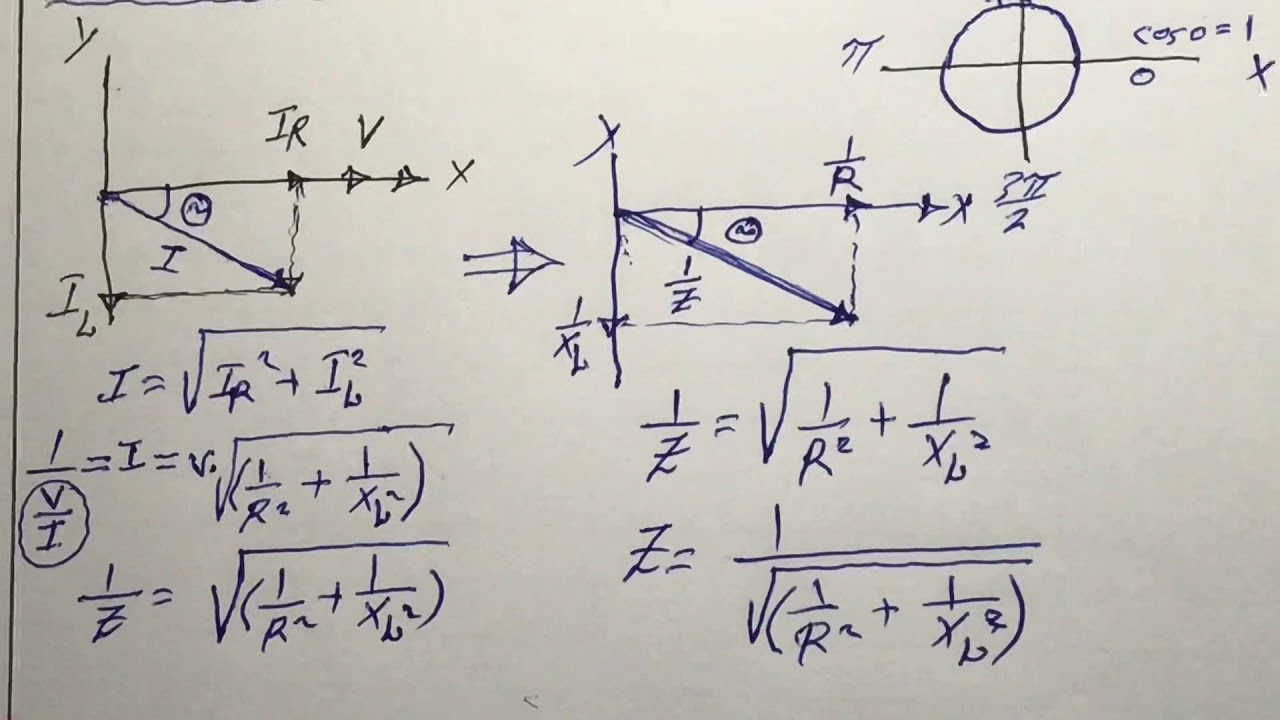 y
I_R V
x
I
I_L
I = √(I_R² + I_L²)
1/(V/I) = I = V·√(1/R² + 1/X_L²)
1/Z = √(1/R² + 1/X_L²)
⇒
y
1/R
x
1/Z
1/X_L
1/Z = √(1/R² + 1/X_L²)
Z = 1/√(1/R² + 1/X_L²)
π
cos 0 = 1
0
X
3π/2